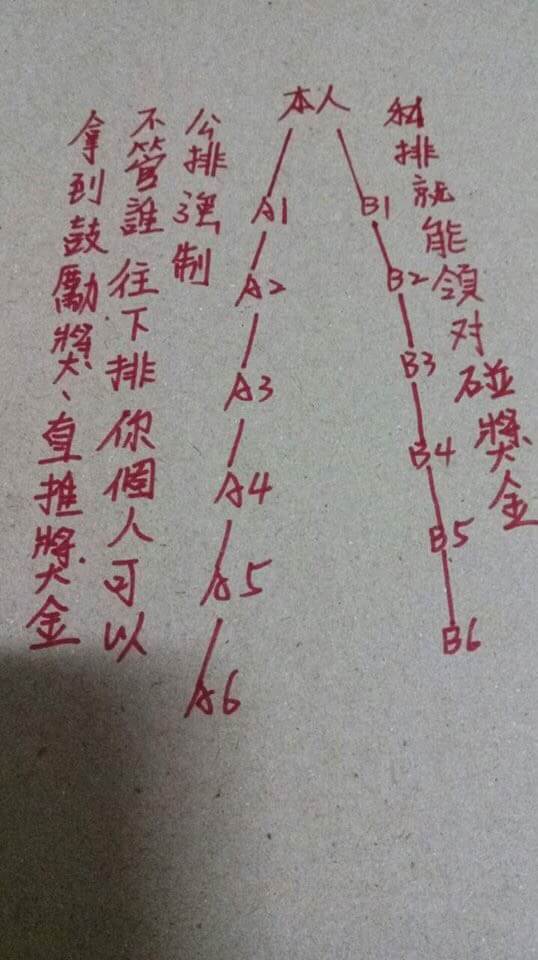 本人
私排就能領对碰獎金
公排強制
不管誰往下排你個人可以
拿到鼓勵獎、直推獎金
A1
A2
A3
A4
A5
A6
B1
B2
B3
B4
B5
B6